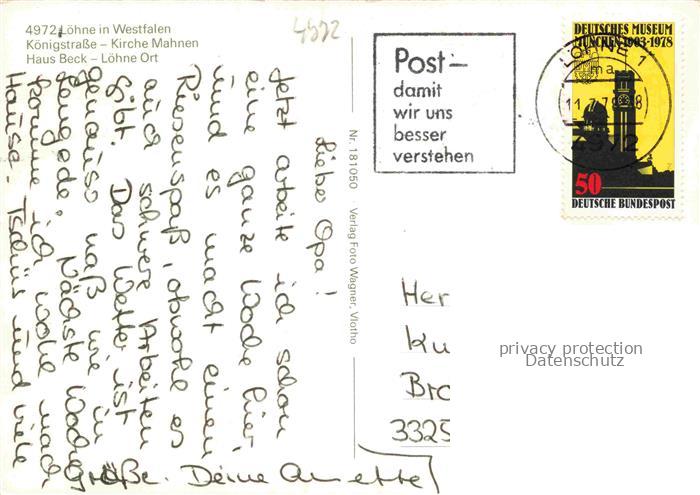 4972 Löhne in Westfalen
Königstraße – Kirche Mahnen
Haus Beck – Löhne Ort
4972
Lieber Opa!
Jetzt arbeite ich schon
eine ganze Woche hier,
und es macht einen
Riesenspaß, obwohl es
auch schwere Arbeiten
gibt. Das Wetter ist
genauso naß wie in
Lengede. Nächste Woche
komme ich wohl nach
Hause. Tschüs und viele
Grüße. Deine Annette
Nr. 181050 Verlag Foto Wagner, Vlotho
Post –
damit
wir uns
besser
verstehen
DEUTSCHES MUSEUM
MÜNCHEN 1903-1978
50
DEUTSCHE BUNDESPOST
LÖHNE 1
ma
11.7.78
4972
Her
Ku
Bro
3325
privacy protection
Datenschutz